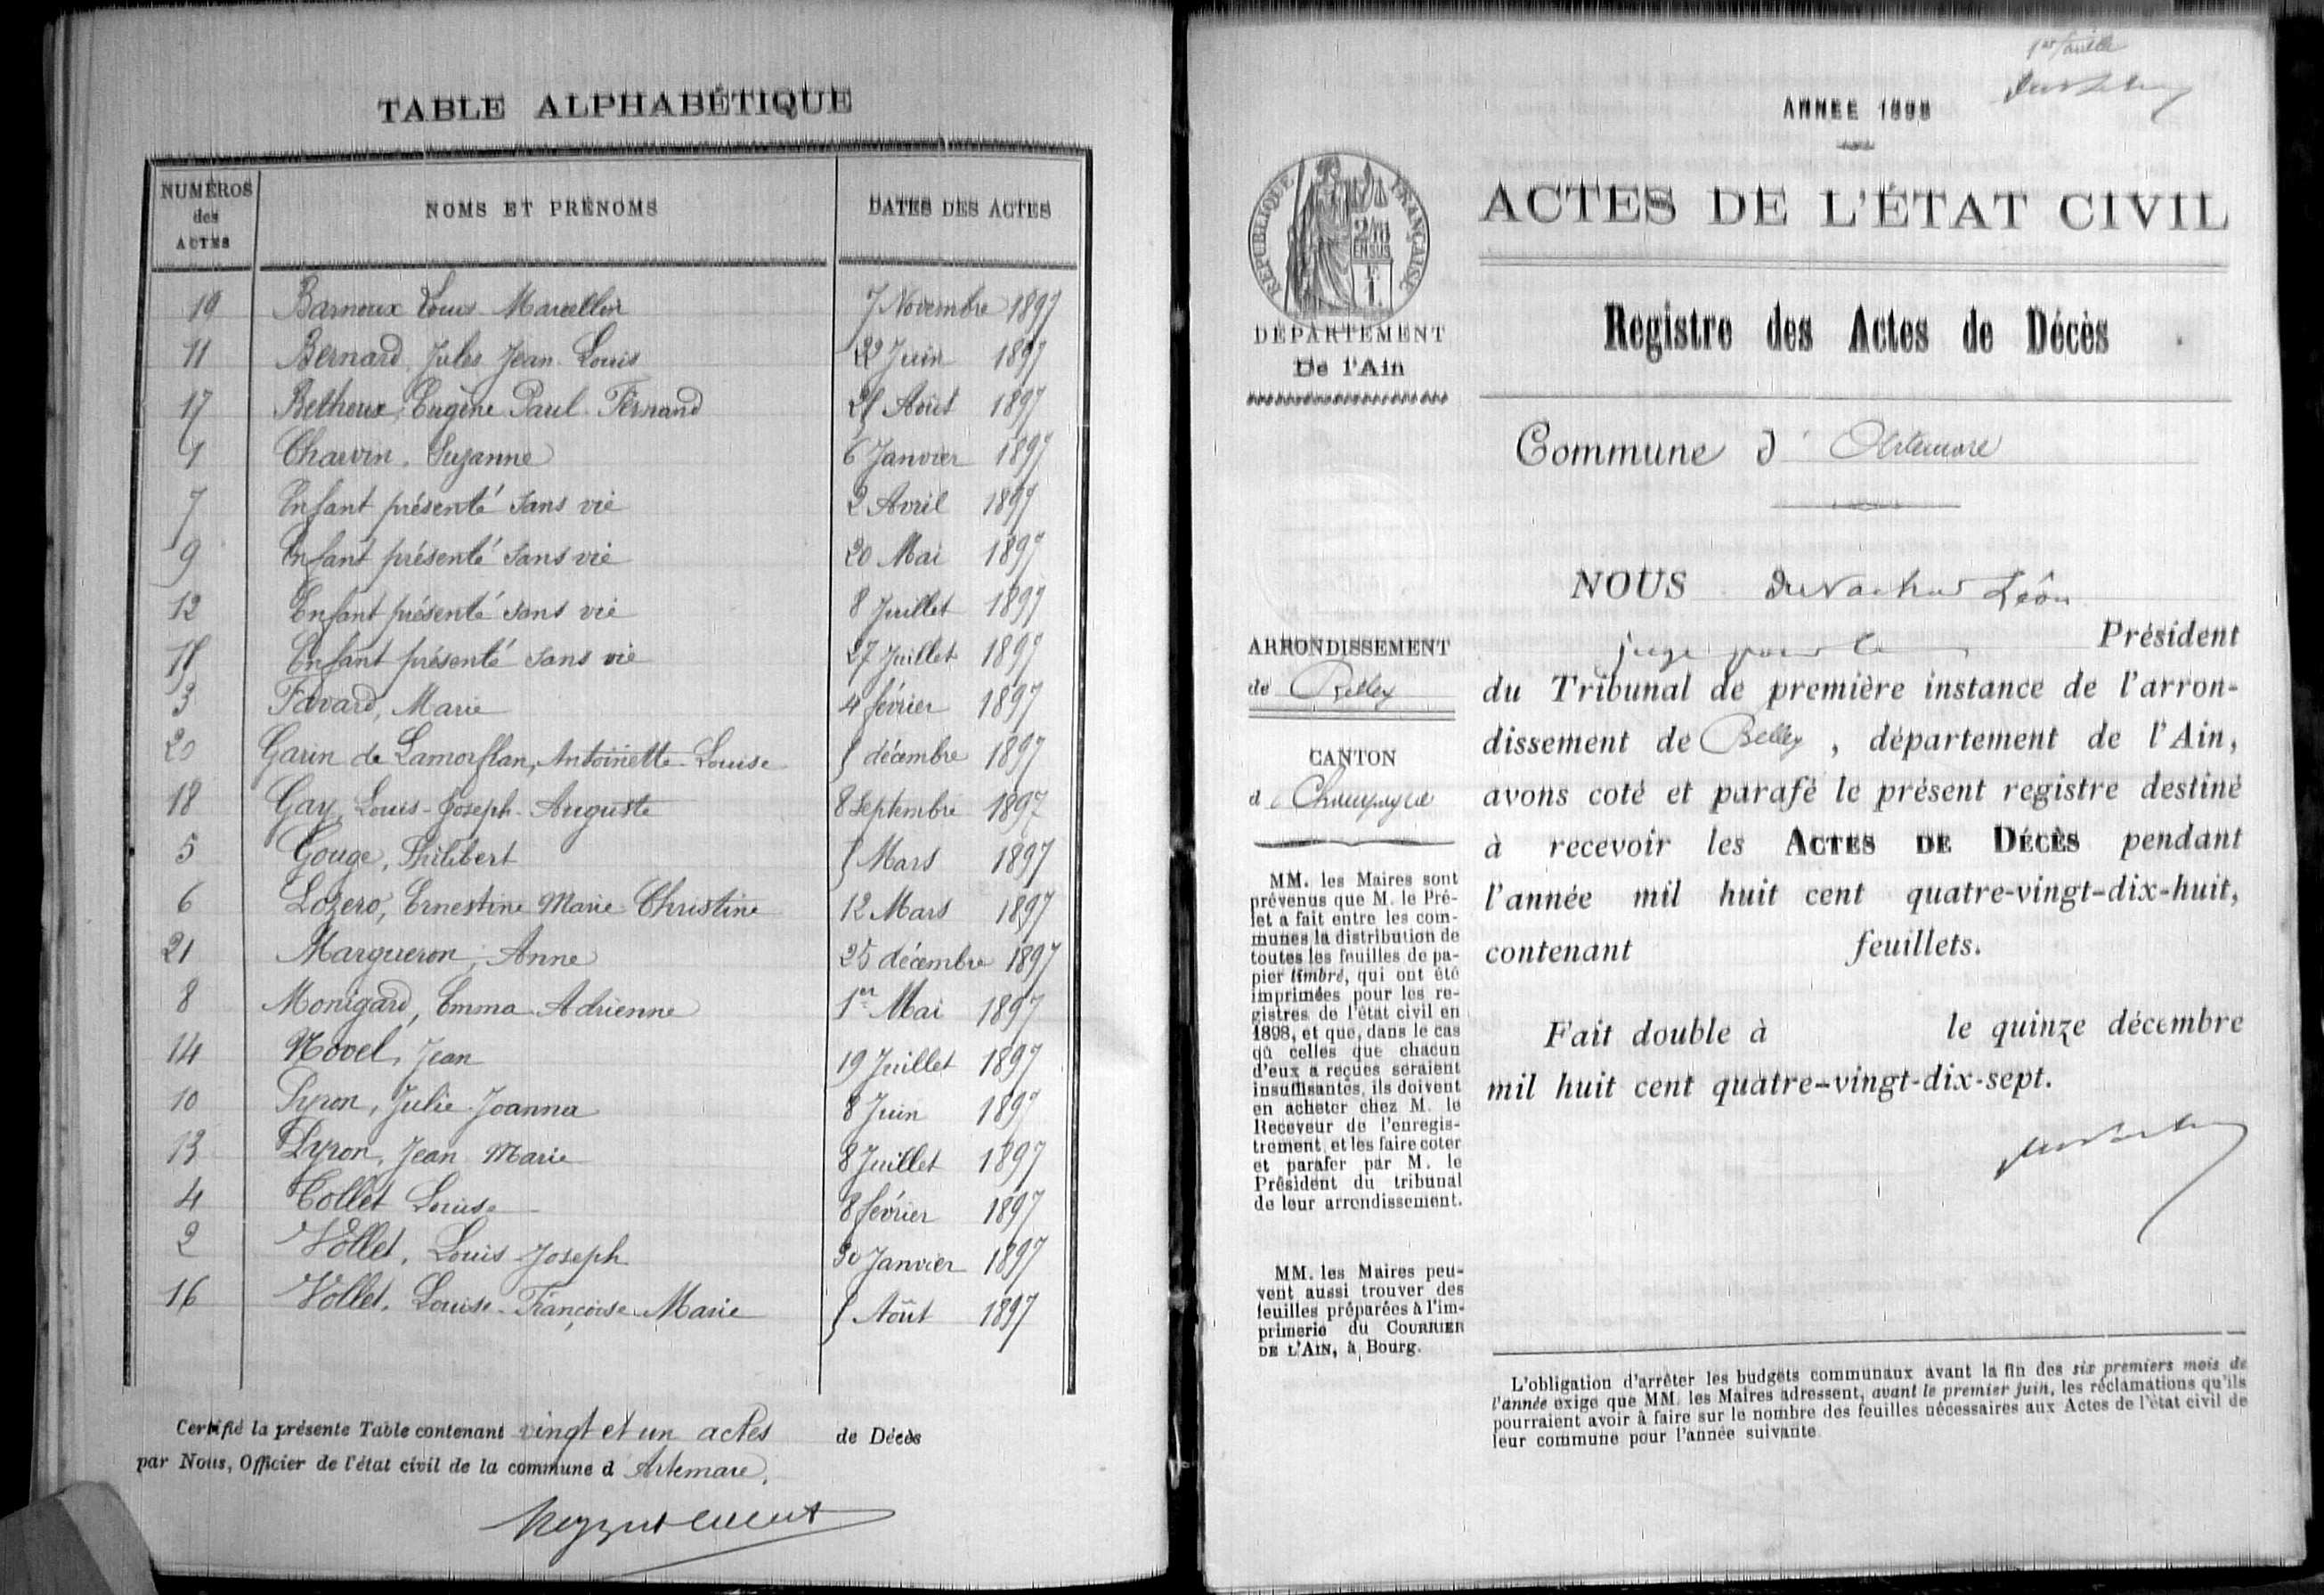 TABLE ALPHABÉTIQUE
NUMÉROS des ACTES NOMS ET PRÉNOMS DATES DES ACTES
19 Barnoux Louis Marcellin 7 Novembre 1897
11 Bernard, Jules Jean Louis 22 Juin 1897
17 Betheux, Eugène Paul Fernand Août 1897
1 Charvin, Suzanne 6 Janvier 1897
7 Enfant présenté sans vie 2 Avril 1897
9 Enfant présenté sans vie 20 Mai 1897
12 Enfant présenté sans vie 8 Juillet 1897
15 Enfant présenté sans vie 27 Juillet 1897
3 Favard, Marie 4 février 1897
20 Garin de Lamorflan, Antoinette Louise 5 décembre 1897
18 Gay, Louis-Joseph-Auguste 8 Septembre 1897
5 Gouge, Philibert 5 Mars 1897
6 Lozero, Ernestine Marie Christine 12 Mars 1897
21 Margueron, Anne 25 décembre 1897
8 Monigard, Emma Adrienne 1er Mai 1897
14 Novel, Jean 19 Juillet 1897
10 Pyron, Julie Joanna 8 Juin 1897
13 Pyron, Jean Marie 8 Juillet 1897
4 Collet Louise 8 février 1897
2 Vollet, Louis-Joseph 30 Janvier 1897
16 Vollet, Louise-Françoise Marie 5 Août 1897
Certifié la présente Table contenant vingt et un actes de Décès
par Nous, Officier de l'état civil de la commune d Artemare.
ANNÉE 1898
RÉPUBLIQUE FRANÇAISE
2/10 EN SUS
DÉPARTEMENT
De l'Ain
ACTES DE L'ÉTAT CIVIL
Registre des Actes de Décès
Commune d' Artemare
ARRONDISSEMENT
de Belley
CANTON
de Champagne
MM. les Maires sont
prévenus que M. le Pré-
fet a fait entre les com-
munes la distribution de
toutes les feuilles de pa-
pier timbré, qui ont été
imprimées pour les re-
gistres de l'état civil en
1898, et que, dans le cas
où celles que chacun
d'eux a reçues seraient
insuffisantes, ils doivent
en acheter chez M. le
Receveur de l'enregis-
trement, et les faire coter
et parafer par M. le
Président du tribunal
de leur arrondissement.
MM. les Maires peu-
vent aussi trouver des
feuilles préparées à l'im-
primerie du COURRIER
DE L'AIN, à Bourg.
NOUS Léon
juge pour le Président
du Tribunal de première instance de l'arron-
dissement de Belley, département de l'Ain,
avons coté et parafé le présent registre destiné
à recevoir les ACTES DE DÉCÈS pendant
l'année mil huit cent quatre-vingt-dix-huit,
contenant feuillets.
Fait double à le quinze décembre
mil huit cent quatre-vingt-dix-sept.
L'obligation d'arrêter les budgets communaux avant la fin des six premiers mois de
l'année exige que MM. les Maires adressent, avant le premier juin, les réclamations qu'ils
pourraient avoir à faire sur le nombre des feuilles nécessaires aux Actes de l'état civil de
leur commune pour l'année suivante.